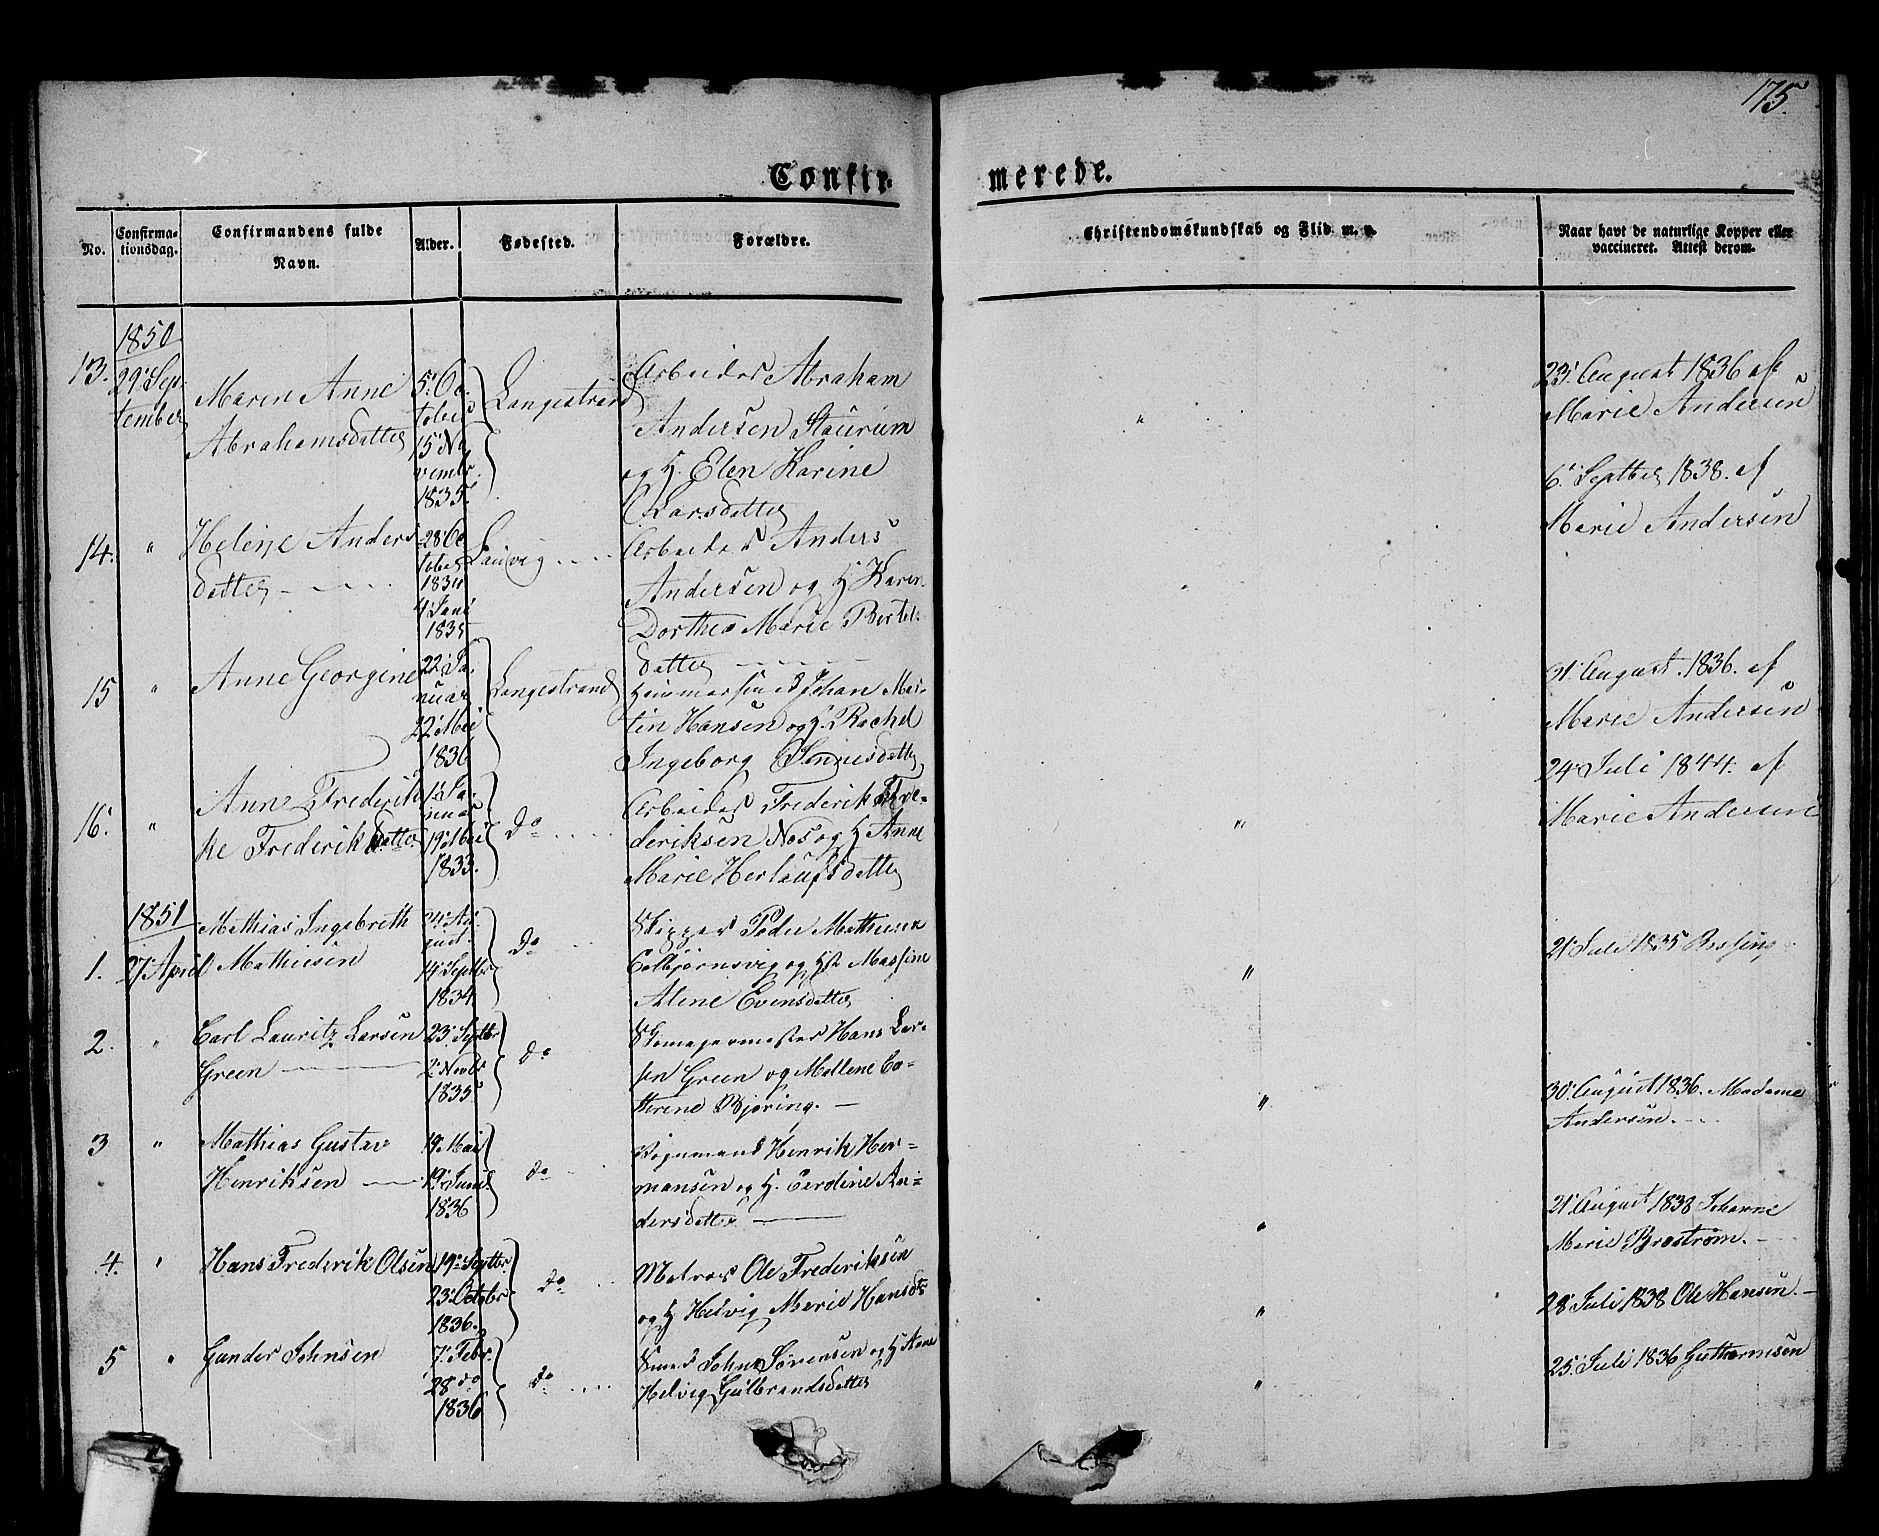 175.
Confir-
merede.
No.
Confirma-
tionsdag.
Confirmandens fulde
Navn.
Alder.
Fødested.
Forældre.
Christendomskundskab og Flid m. v.
Naar havt de naturlige Kopper eller
vaccineret. Attest derom.
1850
13.
29. Sep-
tember
Maren Anne
Abrahamsdatter
5. Oc
tober
15 No
vembr.
1835.
Langestrand
Arbeider Abraham
Andersen Staurum
og H. Elen Karine
Larsdatter
"
23. August 1836 af
Marie Andersen
14.
"
Helene Anders
datter
28 Oc
tober
1834
4. Janr
1835
Laurvig
Arbeider Anders
Andersen og H Karen
Dorthea Marie Bertel-
datter
"
6. Septber 1838. af
Marie Andersen
15
"
Anne Georgine
22. Ja-
nuar
22. Mai
1836
Langestrand
Hammersmed Johan Mar-
tin Hansen og H. Rachel
Ingeborg Tønnesdatter
31. August 1836. af
Marie Andersen
16.
"
Anne Frederik
ke Frederiksdatter
1. Ja-
nuar
19. Mai
1833.
do
Arbeider Frederik Fre-
deriksen Næs og H Anne
Marie Herlaufsdatter
"
24 Juli 1844. af
Marie Andersen
1851
1.
27 April
Mathias Ingebreth
Mathiesen
24. Au
gust.
14. Septbr
1834
do
Skipper Peder Mathiesen
Colbjørnsvig og H Massine
Alene Evensdatter
"
21 Juli 1835
2.
"
Carl Lauritz Larsen
Green
23. Septbr
2. Novbr
1835
do
Skomagermester Hans Lar-
sen Green og Mallene Ca-
thrine Bjøring.
"
30. August 1836. Madame
Andersen.
3
"
Mathias Gustav
Henriksen
19. Mai
19. Juni
1836
do
Vognmand Henrik Her-
mansen og H. Cardine An-
dersdatter
"
21. August 1838 Johanne
Marie Brostrøm.
4.
"
Hans Frederik Olsen
19. Septbr.
23. Octobr
1836.
do
Matros Ole Frederiksen
og H Helvig Marie Hansdr
"
28 Juli 1838 Ole Hansen.
5
"
Gunder Johnsen
7. Febr.
28 do
1836
do
Smed John Sørensen og H Anne
Helvig Gulbrandsdatter
"
25. Juli 1836 Guthormsen